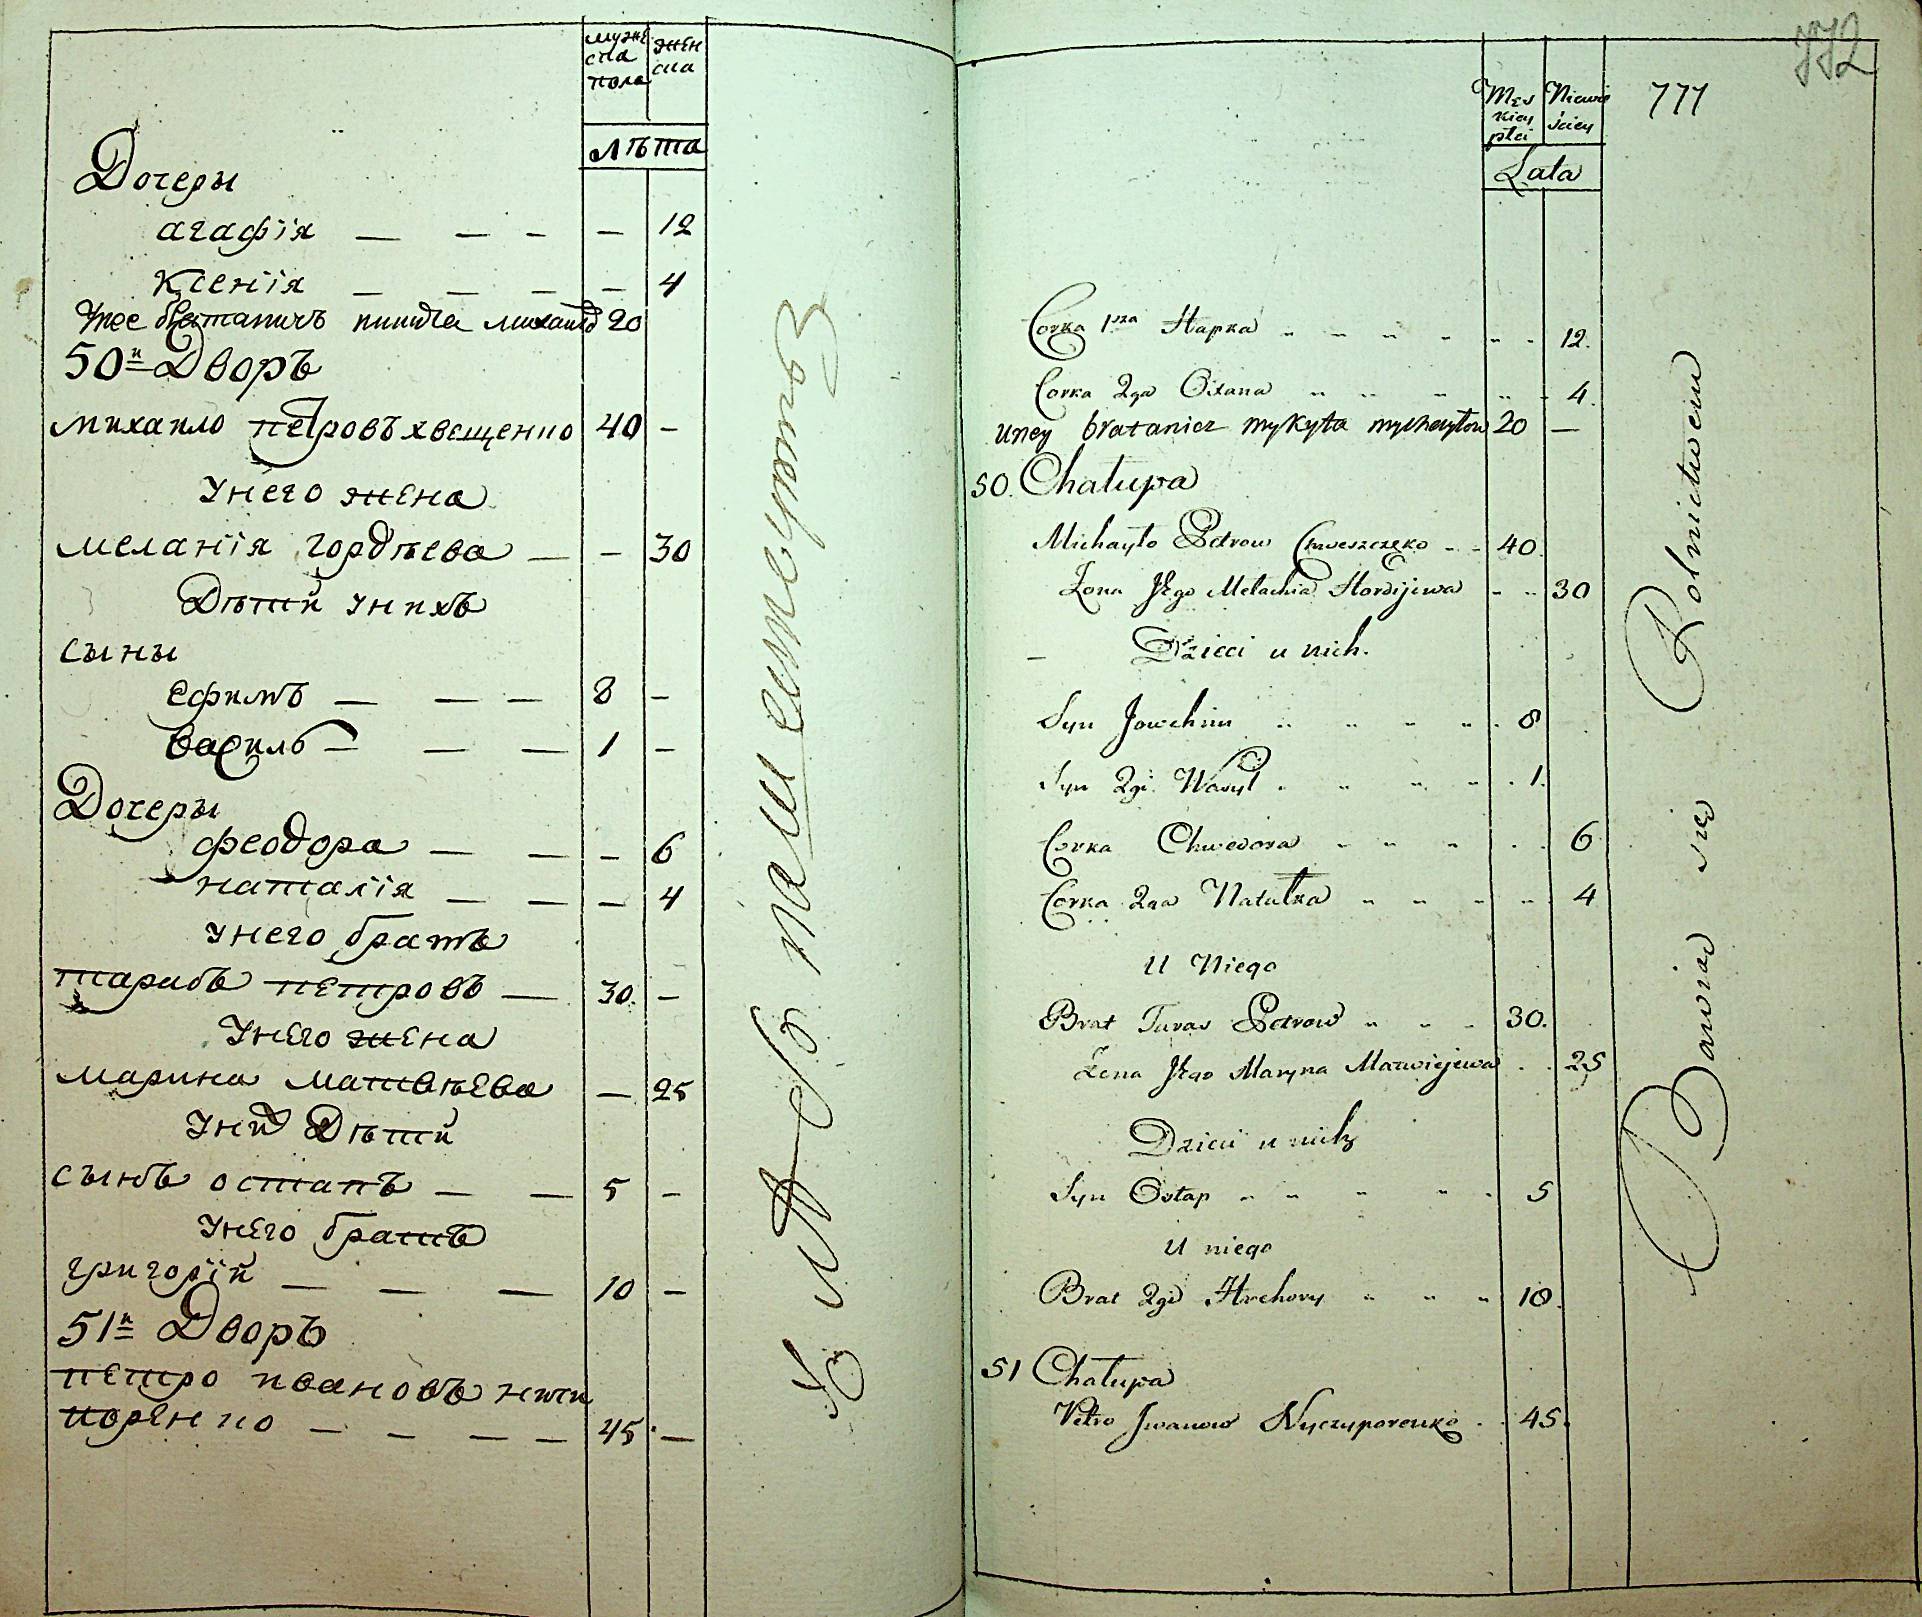 мужеска пола
женска
лѣта
Дочеры
агафія — — — — 12
Ксенія — — — — 4
братаничъ никита михаил 20
50й Дворъ
михаило петровъ хвещенко 40 —
унего жена
меланія гордѣева — — 30
Дѣтей унихъ
сыны
ефимъ — — — 8 —
василь — — — 1 —
Дочеры
феодора — — — 6
наталія — — — 4
унего братъ
тарасъ петровъ — 30 —
унего жена
марина матвѣева — 25
уних Дѣтей
сынъ остапъ — — 5 —
унего братъ
григорій — — — 10 —
51й Дворъ
петро ивановъ ничи
поренко — — — — 45 —
772
777
Męskiey płci
Niewieściey
Lata
Corka 1sza Hapka 12.
Corka 2ga Oxana 4.
uney bratanicz mykyta mychayłow 20 —
50. Chałupa
Michayło Petrow Chweszczeko 40.
Zona Jego Melachia Hordijewa 30
Dzieci u nich.
Syn Jowchim 8
Syn 2gi Wasyl 1.
Corka Chwedora 6
Corka 2ga Natałka 4
U Niego
Brat Taras Petrow 30.
Zona Jego Maryna Matwiejewa 25
Dzieci u nich
Syn Ostap 5
U niego
Brat 2gi Hrehory 10.
51 Chałupa
Petro Iwanow Nyczyporenko 45.
Bawią się Rolnictwem